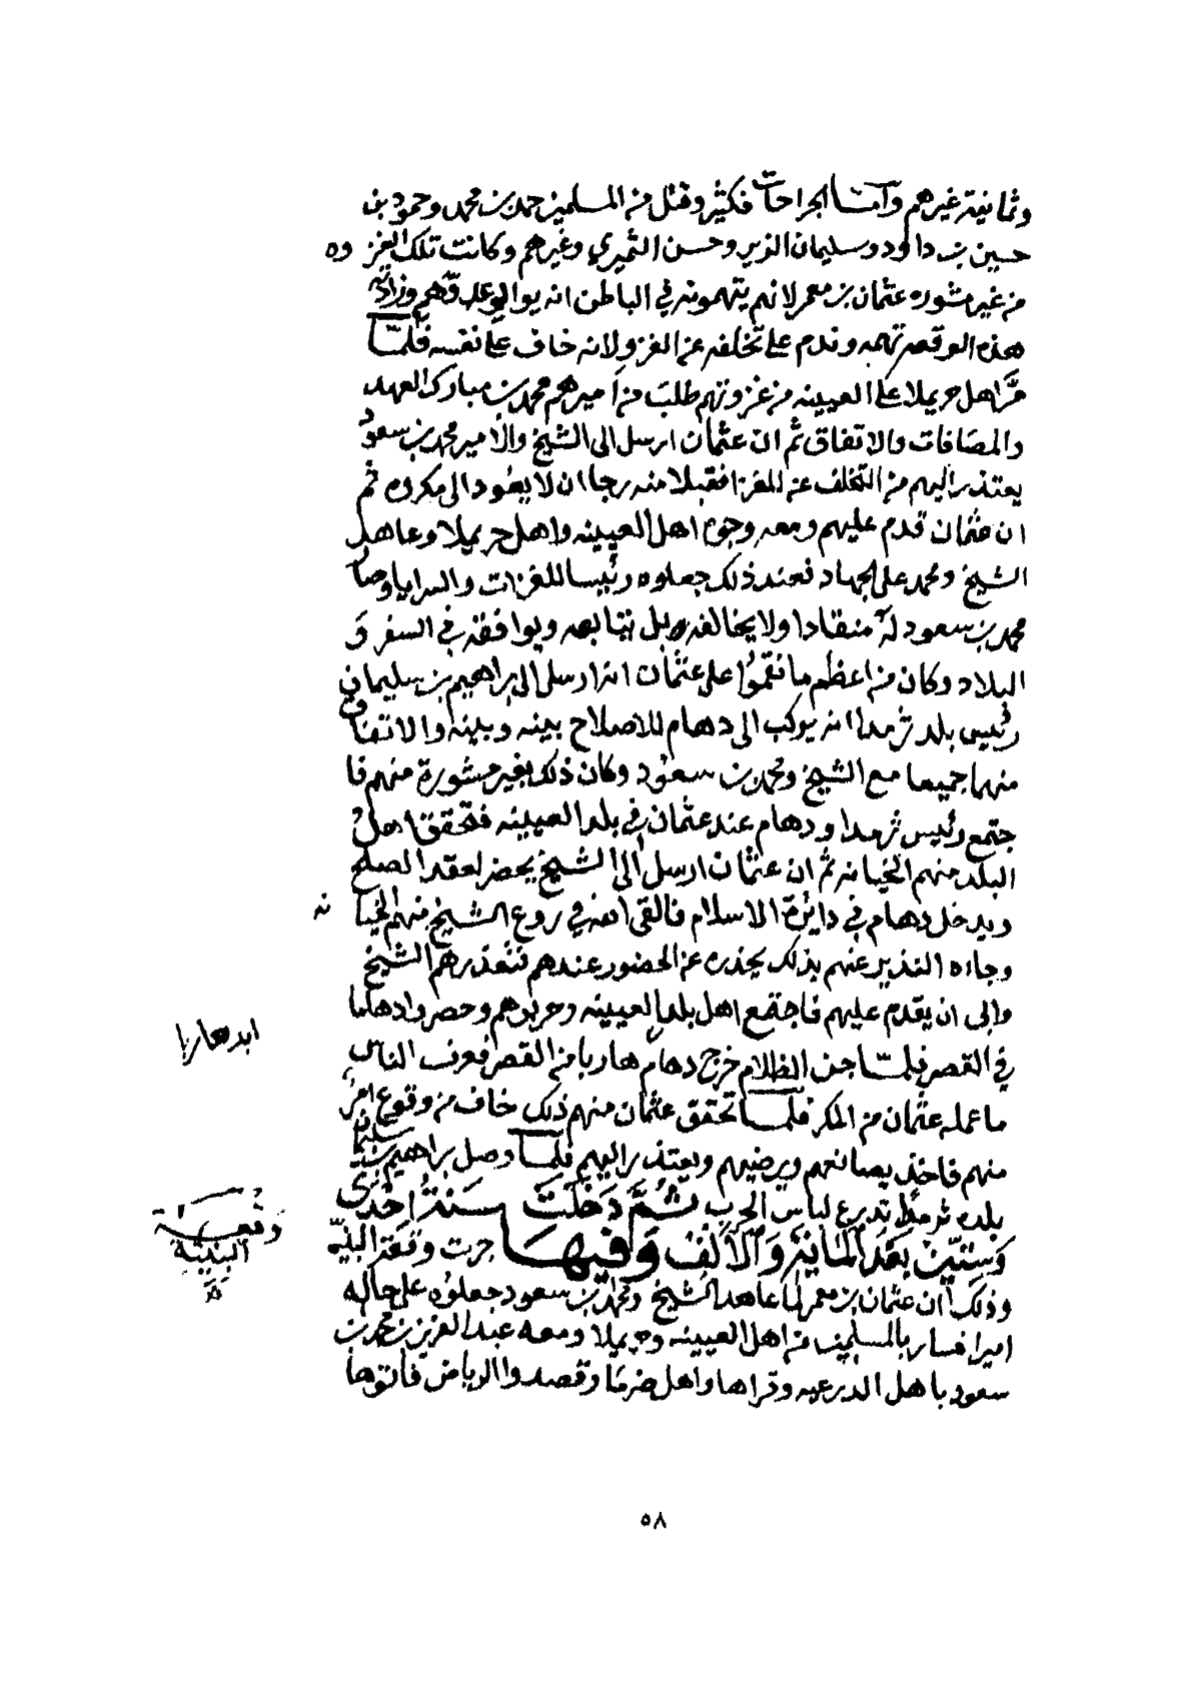 وثمانية غيرهم وأما الجراحات فكثير وقتل من المسلمين حمد بن محمد وحمود بن
حسين بن داود وسليمان الزير وحسن النميري وغيرهم وكانت تلك الغزوه
من غير مشوره عثمان بن معمر لانهم يتهمونه في الباطن انه يوالي عدوهم وزادته
هذه الوقعه تهمه وندم على تخلفه عن الغزو لانه خاف على نفسه فلما
مر اهل حريملا على العيينه من غزوتهم طلب من أميرهم محمد بن مبارك العهد
والمصافات والاتفاق ثم ان عثمان ارسل الى الشيخ والأمير محمد بن سعود
يعتذر اليهم من التخلف عن المغزا فقبلا منه رجا ان لا يعود الى مكروه ثم
ان عثمان قدم عليهم ومعه وجوه اهل العيينه واهل حريملا وعاهد
الشيخ ومحمد على الجهاد فعند ذلك جعلوه رئيسا للغزات والسرايا وصار
محمد بن سعود له منقادا ولا يخالفه بل يتابعه ويوافقه في السفر و
البلاد وكان من اعظم ما نقموا على عثمان انه ارسل الى إبراهيم بن سليمان
رئيس بلد ثرمدا انه يركب الى دهام للاصلاح بينه وبينه والاتفاق
منهما جميعا مع الشيخ ومحمد بن سعود وكان ذلك بغير مشورة منهم فا
جتمع رئيس ثرمدا ودهام عند عثمان في بلد العيينه فتحقق اهل
البلد منهم الخيانه ثم ان عثمان ارسل الى الشيخ يحضر لعقد الصلح
ويدخل دهام في دائرة الاسلام فالقى الله في روع الشيخ منهم الخيانه
وجاءه النذير عنهم بذلك يحذره عن الحضور عندهم فتعذرهم الشيخ
وابى ان يقدم عليهم فاجتمع اهل بلد العيينه وحزبوهم وحصروا دهاما
في القصر فلما جن الظلام خرج دهام هاربا من القصر فعرف الناس
ابد هاربا
ما عمله عثمان من المكر فلما تحقق عثمان منهم ذلك خاف من وقوع امر
منهم فاخذ يصانعهم ويرضيهم ويعتذر اليهم فلما وصل براهيم بن سليمان
بلده ثرمدا تدرع لباس الحرب ثم دخلت سنة احدى
وستين بعد المائة والألف وفيها جرت وقعة البنيه
وقعة
البنية
وذلك ان عثمان بن معمر لما عاهد الشيخ ومحمد بن سعود جعلوه على حاله
اميرا فسار بالمسلمين من اهل العيينه وحريملا ومعه عبد العزيز بن محمد بن
سعود با هل الدرعيه وقراها واهل ضرما وقصدوا الرياض فاتوها
٥٨